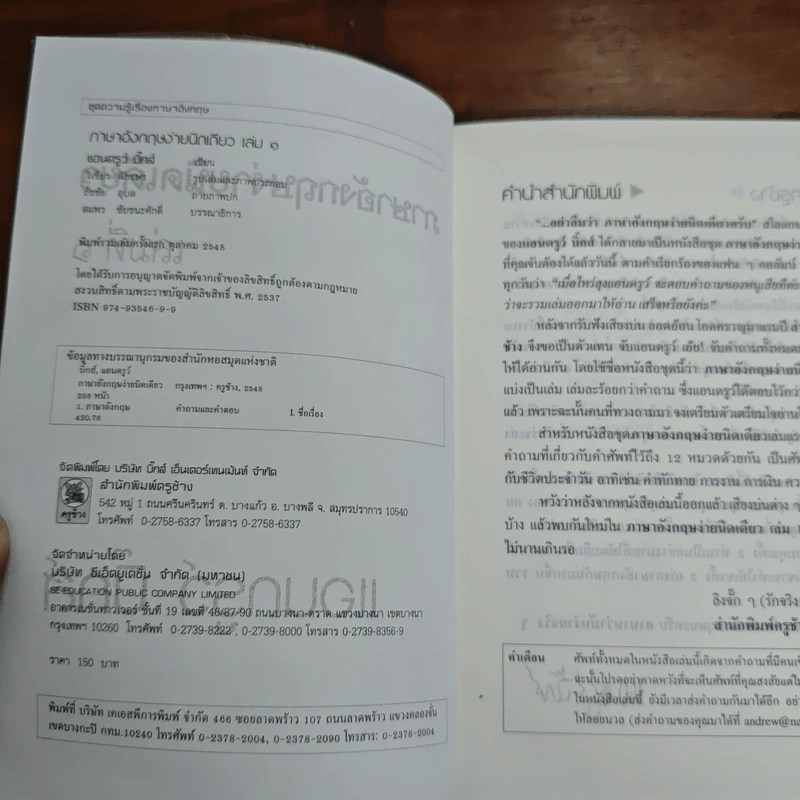 ชุดความรู้เรื่องภาษาอังกฤษ
ภาษาอังกฤษง่ายนิดเดียว เล่ม ๑
แอนดรูว์ บิ๊กส์ เขียน
วิเชียร รูปเล่มและภาพประกอบ
ธัชชัย อุบล ถ่ายภาพปก
สมพร ชัยชนะศักดิ์ บรรณาธิการ
พิมพ์รวมเล่มครั้งแรก ตุลาคม 2548
โดยได้รับการอนุญาตจัดพิมพ์จากเจ้าของลิขสิทธิ์ถูกต้องตามกฎหมาย
สงวนลิขสิทธิ์ตามพระราชบัญญัติลิขสิทธิ์ พ.ศ. 2537
ISBN 974-93546-9-9
ข้อมูลทางบรรณานุกรมของสำนักหอสมุดแห่งชาติ
บิ๊กส์, แอนดรูว์
ภาษาอังกฤษง่ายนิดเดียว กรุงเทพฯ : ครูช้าง, 2548
256 หน้า
1. ภาษาอังกฤษ คำถามและคำตอบ I. ชื่อเรื่อง
420.76
จัดพิมพ์โดย บริษัท บิ๊กส์ เอ็นเตอร์เทนเม้นท์ จำกัด
สำนักพิมพ์ครูช้าง
ครูช้าง
542 หมู่ 1 ถนนศรีนครินทร์ ต. บางแก้ว อ. บางพลี จ. สมุทรปราการ 10540
โทรศัพท์ 0-2758-6337 โทรสาร 0-2758-6337
จัดจำหน่ายโดย
บริษัท ซีเอ็ดยูเคชั่น จำกัด (มหาชน)
SE-EDUCATION PUBLIC COMPANY LIMITED
อาคารเนชั่นทาวเวอร์ ชั้นที่ 19 เลขที่ 46/87-90 ถนนบางนา-ตราด แขวงบางนา เขตบางนา
กรุงเทพฯ 10260 โทรศัพท์ 0-2739-8222 , 0-2739-8000 โทรสาร 0-2739-8356-9
ราคา 150 บาท
พิมพ์ที่ บริษัท เคเอสพีการพิมพ์ จำกัด 466 ซอยลาดพร้าว 107 ถนนลาดพร้าว แขวงคลองจั่น
เขตบางกะปิ กทม.10240 โทรศัพท์ 0-2378-2004, 0-2378-2090 โทรสาร: 0-2378-2004
คำนำสำนักพิมพ์
"...อย่าลืมว่า ภาษาอังกฤษง่ายนิดเดียวครับ" สโลแกน
ของแอนดรูว์ บิ๊กส์ ได้กลายมาเป็นหนังสือชุด ภาษาอังกฤษง่า
ที่คุณจับต้องได้แล้ววันนี้ ตามคำเรียกร้องของแฟน ๆ คอลัมน์
ทุกวันว่า "เมื่อไหร่ลุงแอนดรูว์ จะตอบคำถามของหนูเสียทีคะ
ว่าจะรวมเล่มออกมาให้อ่าน เสร็จหรือยังคะ"
หลังจากรับฟังเสียงบ่น ออดอ้อน โอดครวญมาแรมปี สำ
ช้าง จึงขอเป็นตัวแทน จับแอนดรูว์ เอ้ย! จับคำถามทั้งหมด
ให้ได้อ่านกัน โดยใช้ชื่อหนังสือชุดนี้ว่า ภาษาอังกฤษง่ายนิ
แบ่งเป็นเล่ม เล่มละร้อยกว่าคำถาม ซึ่งแอนดรูว์ได้ตอบไว้
แล้ว เพราะฉะนั้นคนที่ทวงถามมา จงเตรียมตัวเตรียมใจอ่าน
สำหรับหนังสือชุดภาษาอังกฤษง่ายนิดเดียวเล่ม
คำถามที่เกี่ยวกับคำศัพท์ไว้ถึง 12 หมวดด้วยกัน เป็นศัพ
กับชีวิตประจำวัน อาทิเช่น คำทักทาย การงาน การเงิน
หวังว่าหลังจากหนังสือเล่มนี้ออกแล้ว เสียงบ่นต่าง ๆ
บ้าง แล้วพบกันใหม่ใน ภาษาอังกฤษง่ายนิดเดียว เล่ม
ไม่นานเกินรอ
ลิงจั๊ก ๆ (รักจริง
สำนักพิมพ์ครูช้า
คำเตือน ศัพท์ทั้งหมดในหนังสือเล่มนี้เกิดจากคำถามที่มีคน
ฉะนั้นโปรดอย่าคาดหวังที่จะเห็นศัพท์ที่คุณสงสัย
ในหนังสือเล่มนี้ ยังมีเวลาส่งคำถามกันมาได้อีก อย่า
ให้ลอยนวล (ส่งคำถามของคุณมาได้ที่ andrew@na